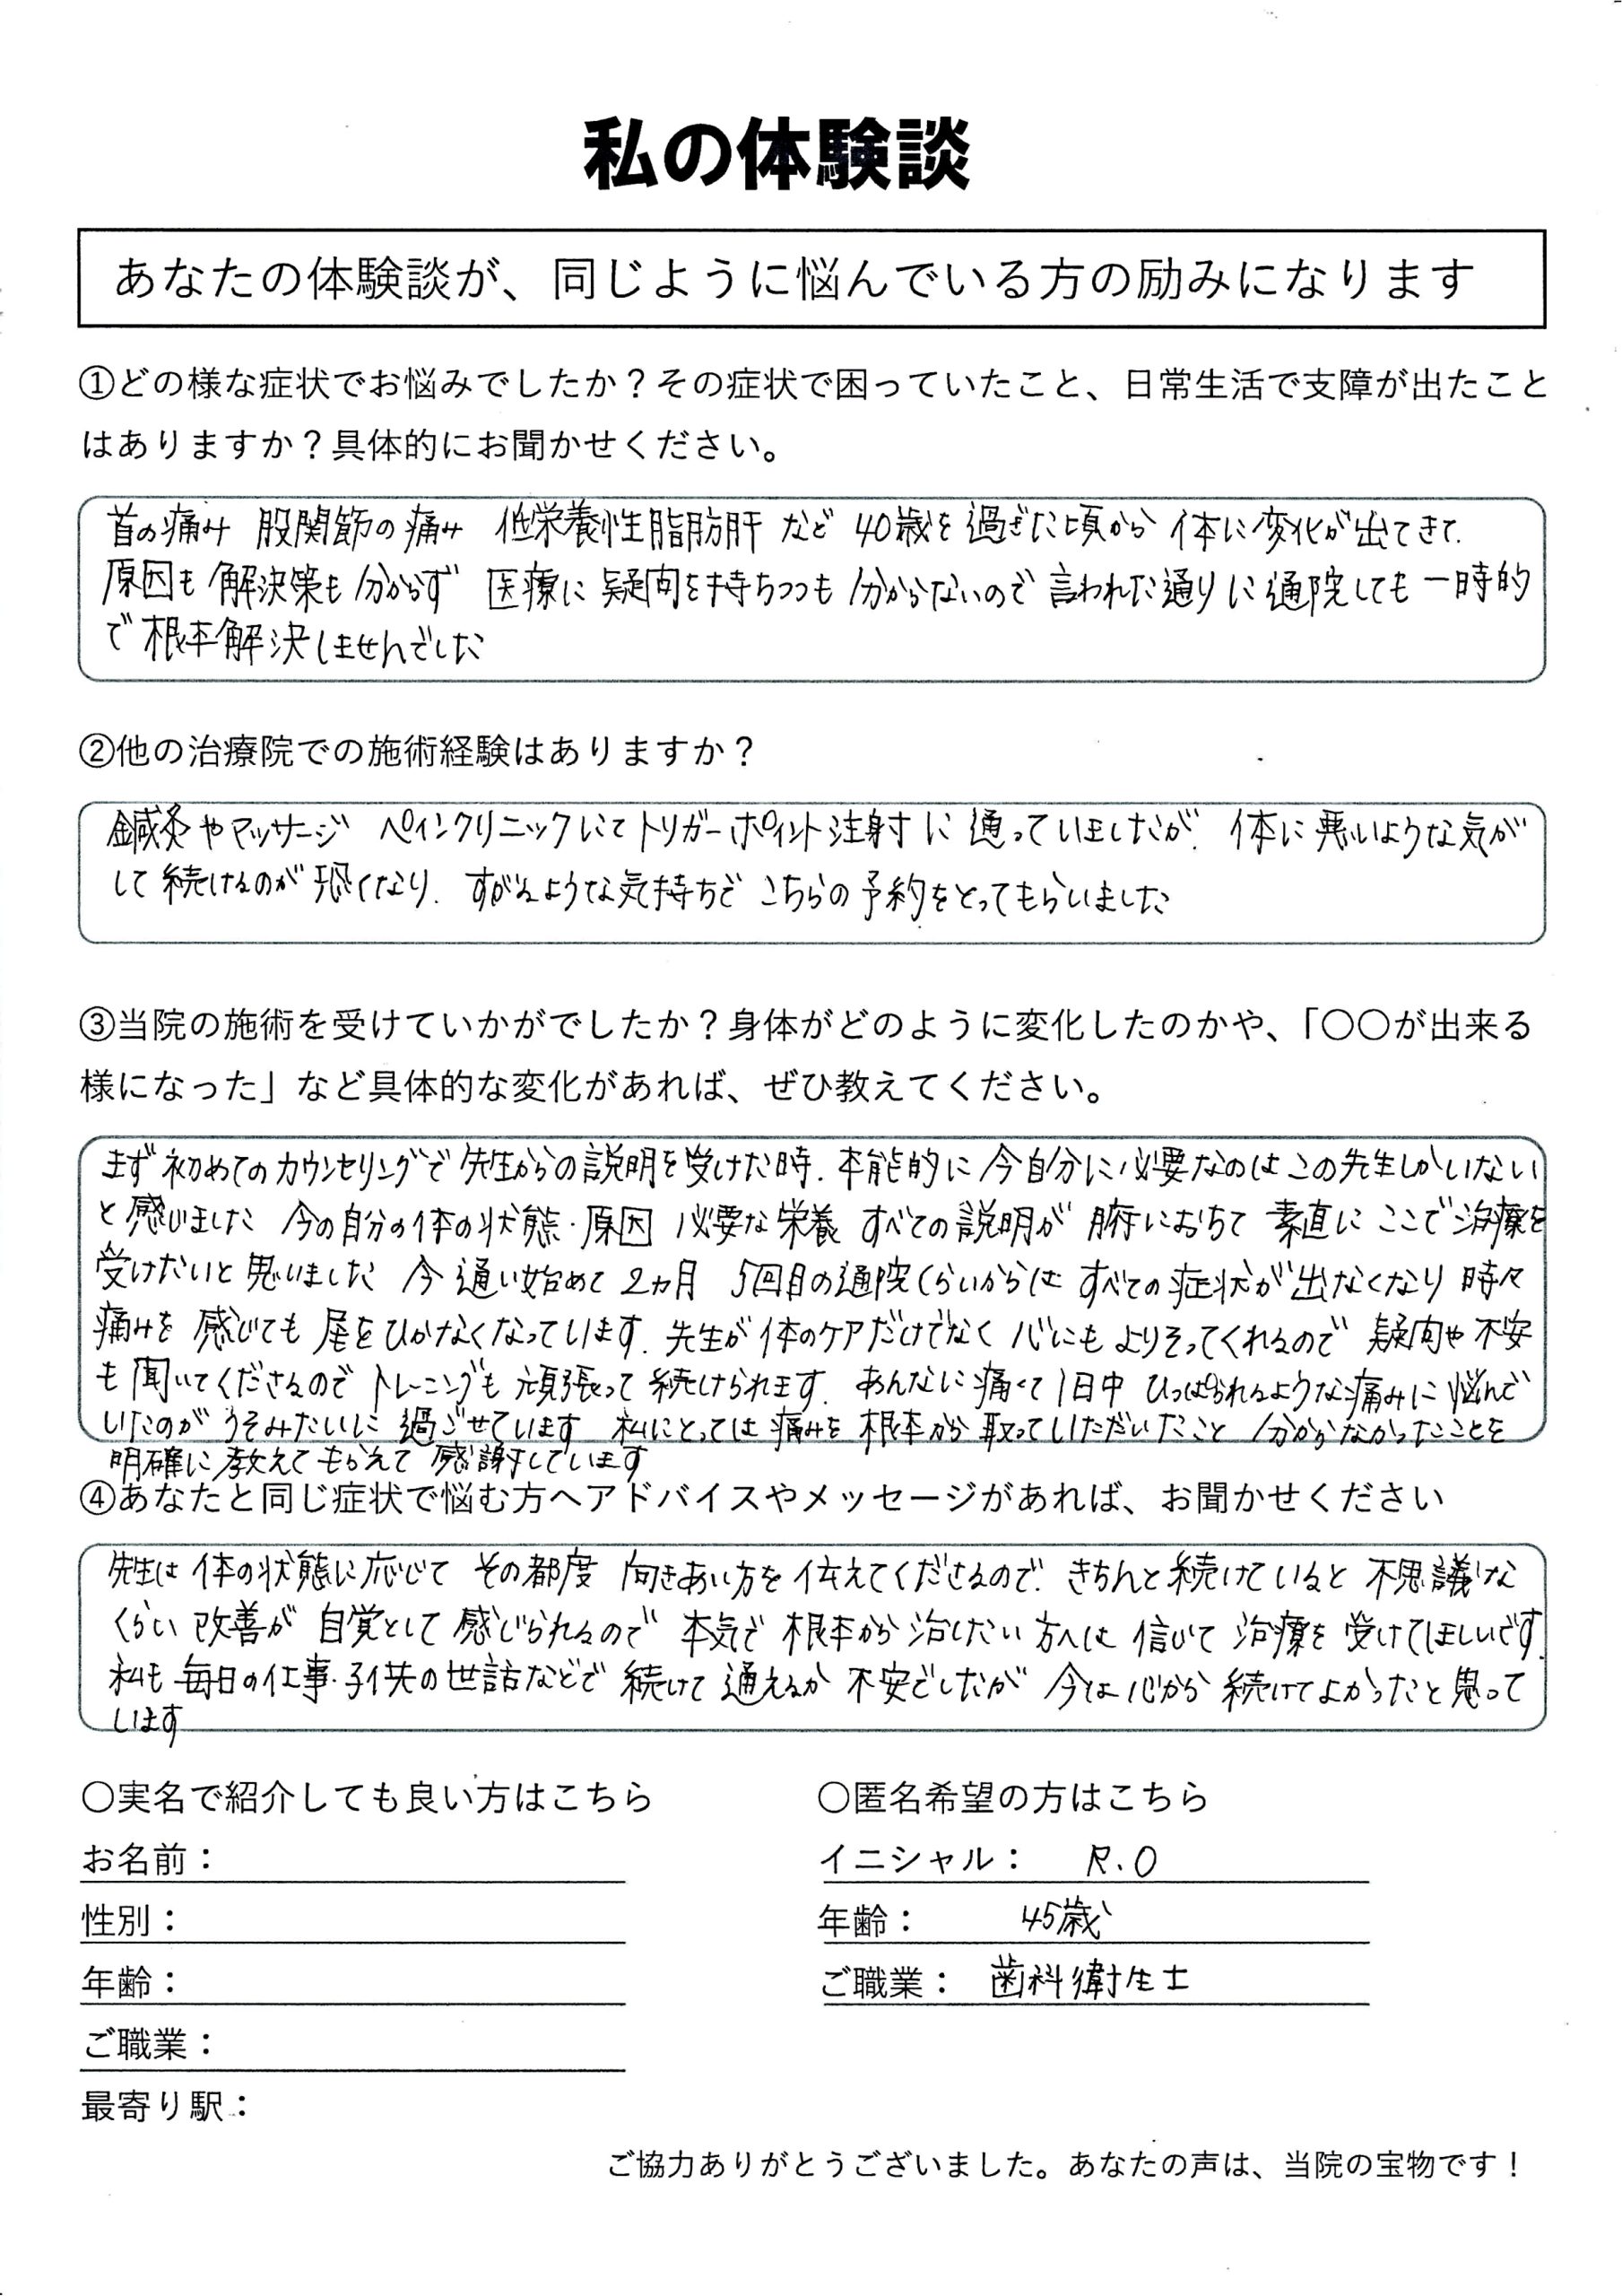 私の体験談
あなたの体験談が、同じように悩んでいる方の励みになります
①どの様な症状でお悩みでしたか？その症状で困っていたこと、日常生活で支障が出たこと
はありますか？具体的にお聞かせください。
首の痛み 股関節の痛み 低栄養性脂肪肝 など 40歳を過ぎた頃から 体に変化が出てきて.
原因も解決策も分からず 医療に疑問を持ちつつも 分からないので 言われた通りに通院しても一時的
で根本解決しませんでした
②他の治療院での施術経験はありますか？
鍼灸やマッサージ ペインクリニックにてトリガーポイント注射に通っていましたが. 体に悪いような気が
して続けるのが恐くなり. すがるような気持ちで こちらの予約をとってもらいました
③当院の施術を受けていかがでしたか？身体がどのように変化したのかや、「〇〇が出来る
様になった」など具体的な変化があれば、ぜひ教えてください。
まず初めてのカウンセリングで先生からの説明を受けた時. 本能的に今自分に必要なのはこの先生しかいない
と感じました 今の自分の体の状態・原因 必要な栄養 すべての説明が 腑におちて 素直に ここで治療を
受けたいと思いました 今通い始めて2ヵ月 5回目の通院くらいからは すべての症状が出なくなり 時々
痛みを感じても尾をひかなくなっています. 先生が体のケアだけでなく 心にもよりそってくれるので 疑問や不安
も聞いてくださるので トレーニングも頑張って続けられます. あんなに痛くて1日中 ひっぱられるような痛みに悩んで
いたのが うそみたいに 過ごせています 私にとっては痛みを根本から取っていただいたこと 分からなかったことを
明確に教えてもらえて感謝しています
④あなたと同じ症状で悩む方へアドバイスやメッセージがあれば、お聞かせください
先生は体の状態に応じて その都度 向きあい方を伝えてくださるので. きちんと続けていると 不思議な
くらい改善が 自覚として感じられるので 本気で根本から治したい方へは 信じて治療を受けてほしいです.
私も毎日の仕事・子供の世話などで続けて通えるか不安でしたが 今は心から続けてよかったと思って
います
〇実名で紹介しても良い方はこちら
お名前：
性別：
年齢：
ご職業：
最寄り駅：
〇匿名希望の方はこちら
イニシャル： R.O
年齢： 45歳
ご職業： 歯科衛生士
ご協力ありがとうございました。あなたの声は、当院の宝物です！